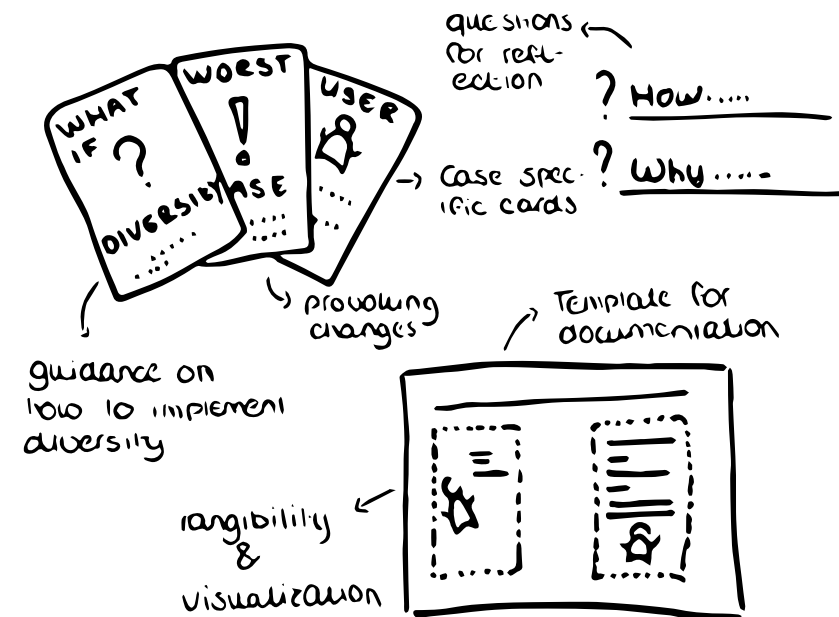 questions
for refl-
ection
? How.....
? Why.....
WHAT
IF
?
DIVERSITY
WORST
!
CASE
USER
case spec-
ific cards
provoking
changes
guidance on
how to implement
diversity
Template for
documentation
tangibility
&
visualization